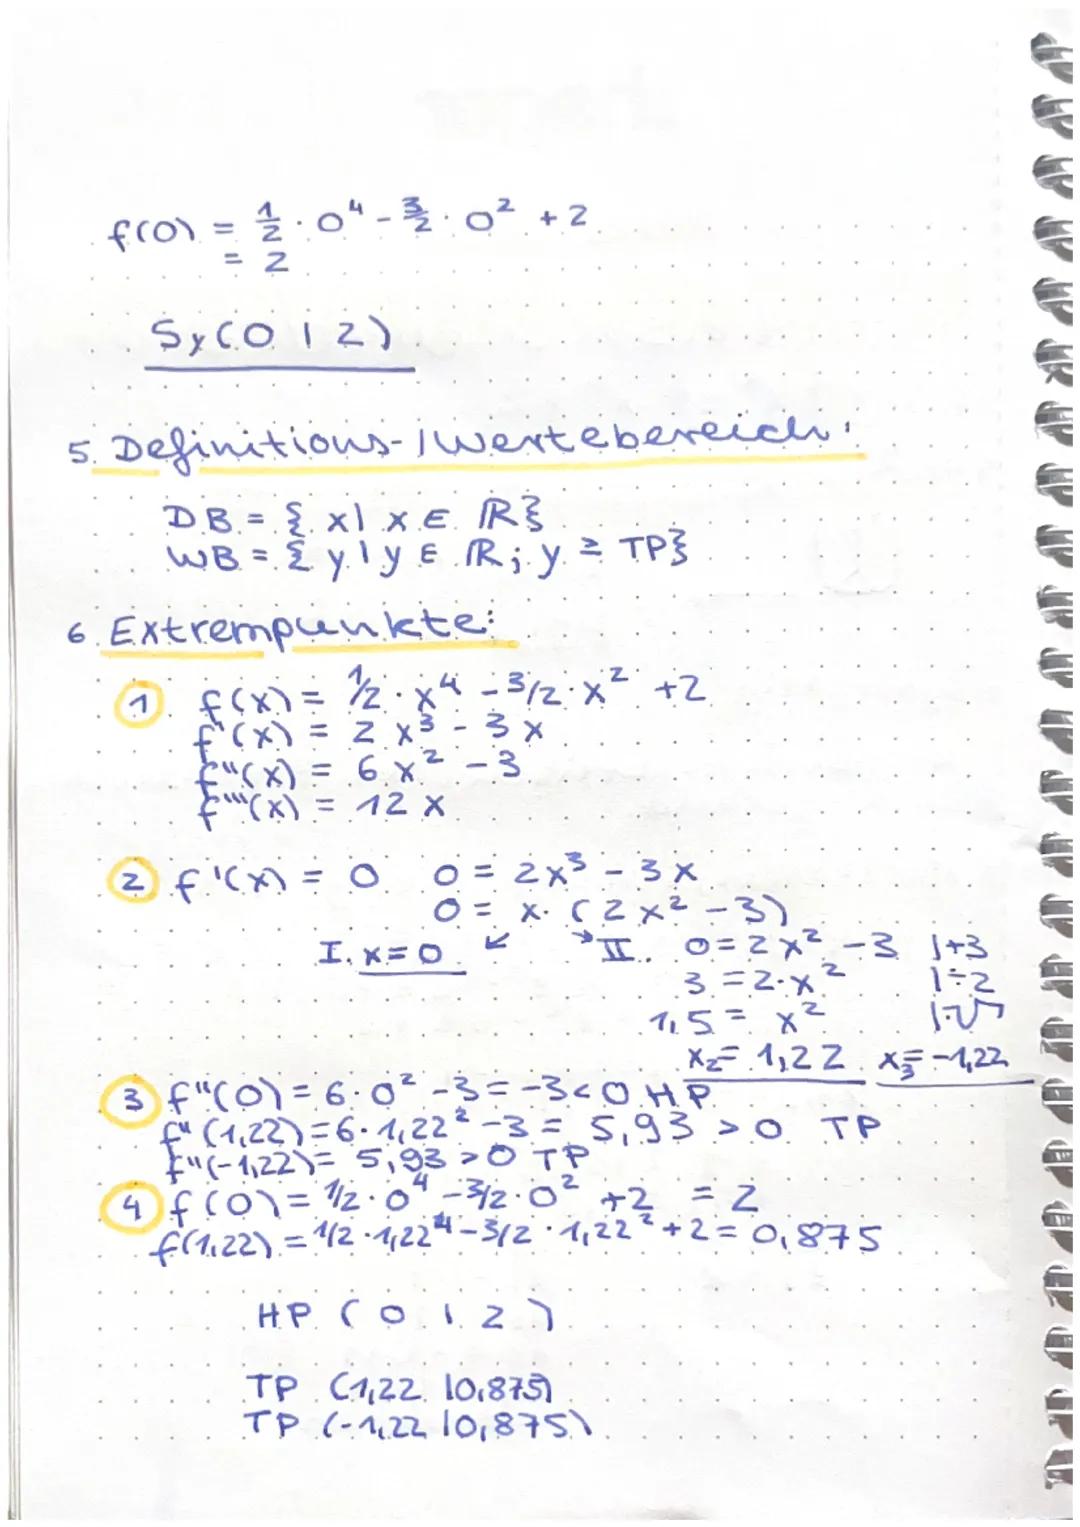 f(0) = 1/2 · 0⁴ - 3/2 · 0² + 2
= 2
Sy(0 | 2)
5. Definitions-/Wertebereich:
DB = { x | x ∈ ℝ}
WB = { y | y ∈ ℝ; y ≥ TP}
6. Extrempunkte:
① f(x) = 1/2 · x⁴ - 3/2 · x² + 2
f'(x) = 2x³ - 3x
f''(x) = 6x² - 3
f'''(x) = 12x
② f'(x) = 0 0 = 2x³ - 3x
0 = x · (2x² - 3)
I. x = 0 ↙ ↘ II. 0 = 2x² - 3 |+3
3 = 2·x² |÷2
1,5 = x² |√
x₂ = 1,22 x₃ = -1,22
③ f''(0) = 6·0² - 3 = -3 < 0 HP
f''(1,22) = 6·1,22² - 3 = 5,93 > 0 TP
f''(-1,22) = 5,93 > 0 TP
④ f(0) = 1/2 · 0⁴ - 3/2 · 0² + 2 = 2
f(1,22) = 1/2 · 1,22⁴ - 3/2 · 1,22² + 2 = 0,875
HP (0 | 2)
TP (1,22 | 0,875)
TP (-1,22 | 0,875)